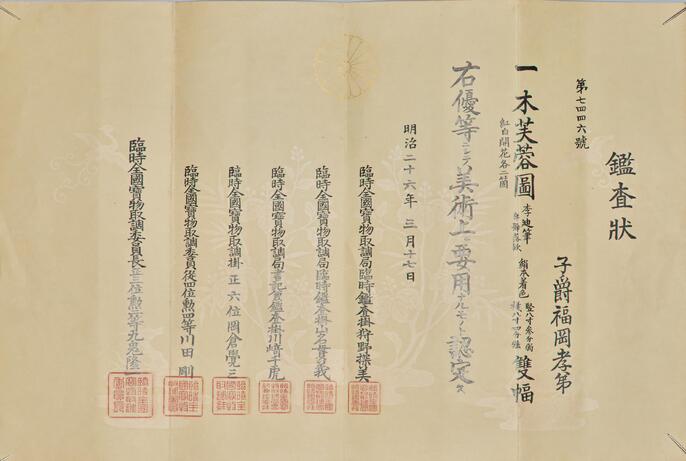 鑑査狀
子爵福岡孝弟
第七四四六號
一木芙蓉圖 李迪筆 絹本着色 竪八寸參分弱 橫八寸四分強 雙幅
紅白開花各二箇
右優等ニシテ美術上ノ要用ナルモノト認定ス
明治二十六年 三月十七日
臨時全國寶物取調局臨時鑑査掛狩野探美
臨時全國寶物取調局臨時鑑査掛山名貫義
臨時全國寶物取調局書記兼鑑査掛川﨑千虎
臨時全國寶物取調掛 正六位岡倉覺三
臨時全國寶物取調委員從四位勲四等川田 剛
臨時全國寶物取調委員長正三位勲二等九鬼隆一